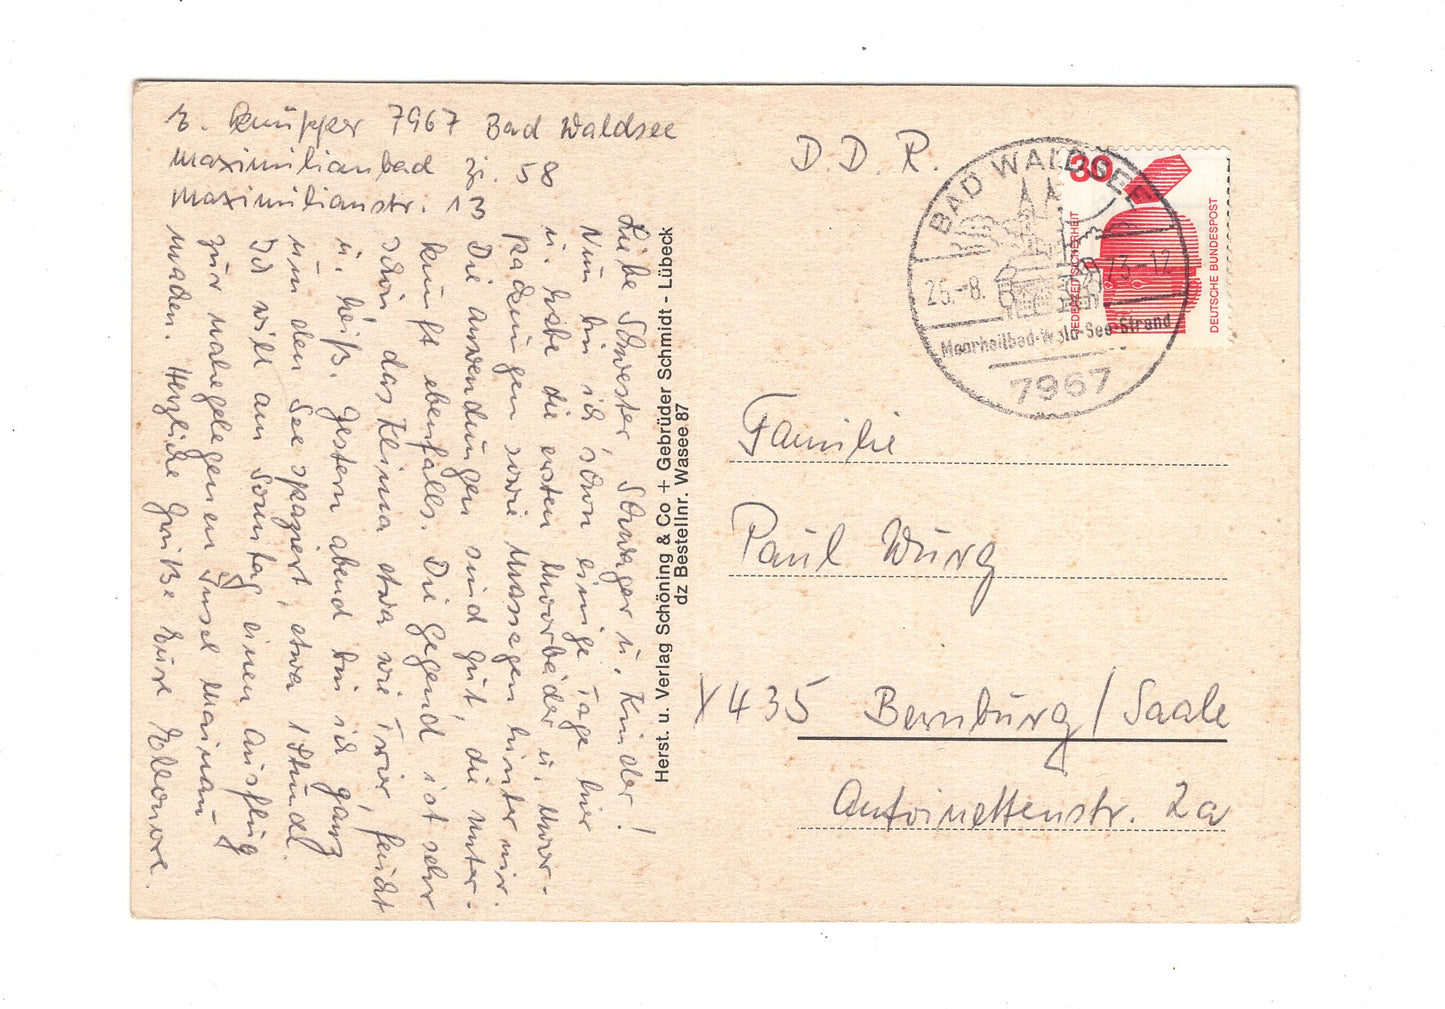 E. Knüpper 7967 Bad Waldsee
Maximilianbad Zi. 58
Maximilianstr. 13
Liebe Schwester, Schwager u. Kinder!
Nun bin ich schon einige Tage hier
u. habe die ersten Moorbäder u. Moor-
packungen sowie Massagen hinter mir.
Die Anwendungen sind gut, die Unter-
kunft ebenfalls. Die Gegend ist sehr
schön, das Klima etwa wie Trier, feucht
u. heiß. Gestern abend bin ich ganz
um den See spaziert, etwa 1 Stunde.
Ich will am Sonntag einen Ausflug
zur nahegelegenen Insel Mainau
machen. Herzliche Grüße Eure Elleonore.
Herst. u. Verlag Schöning & Co + Gebrüder Schmidt - Lübeck
dz Bestellnr. Wasee 87
D.D.R.
BAD WALDSEE
25.-8.73-12
Moorheilbad-Wald-See-Strand
7967
30
JEDERZEIT SICHERHEIT
DEUTSCHE BUNDESPOST
Familie
Paul Wurg
X435 Bernburg/Saale
Antoinettenstr. 2a